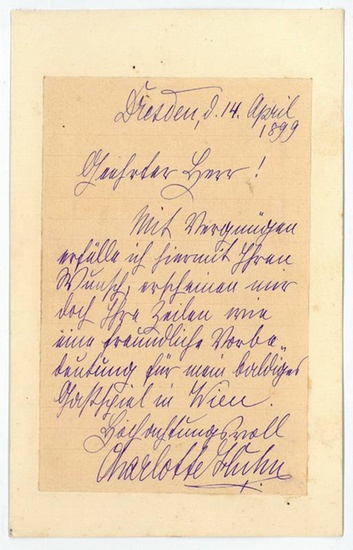 Dresden, d. 14. April
1899
Geehrter Herr!
Mit Vergnügen
erfülle ich hiermit Ihren
Wunsch, erscheinen mir
doch Ihre Zeilen wie
eine freundliche Vorbe„
deutung für mein baldiges
Gastspiel in Wien.
Hochachtungsvoll
Charlotte Huhn